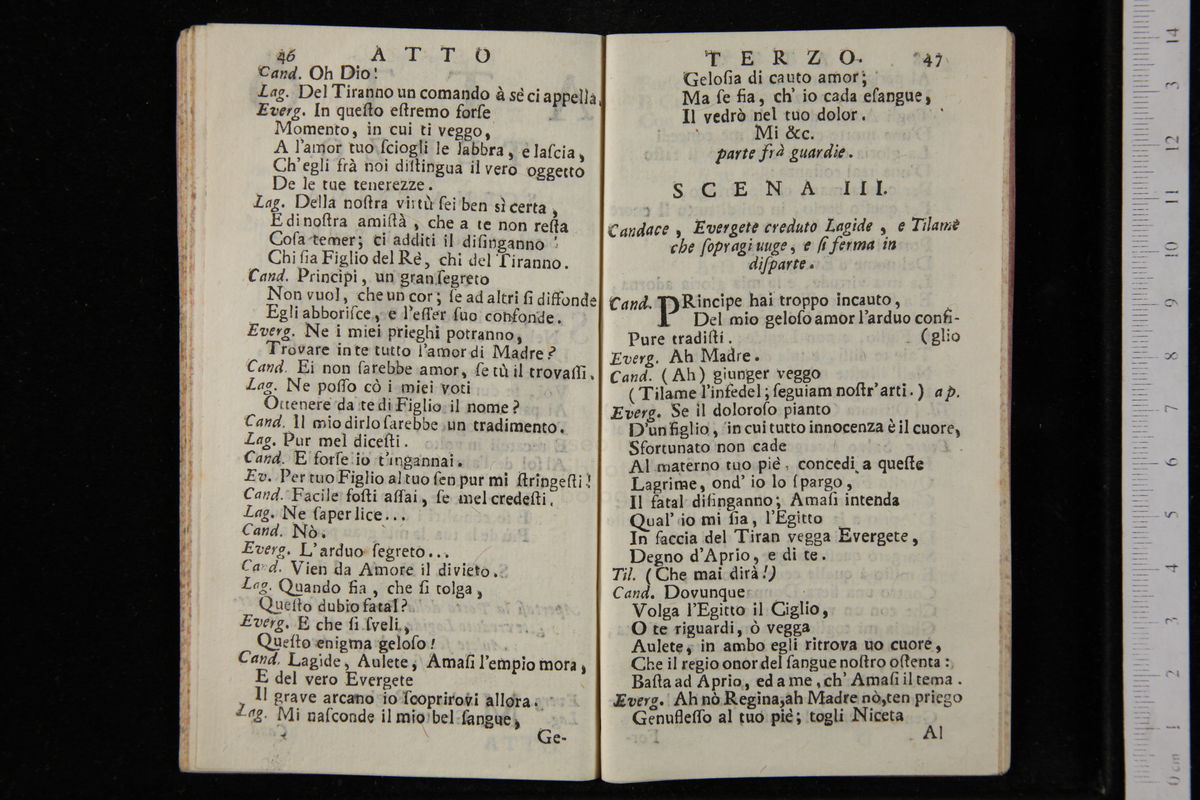 46 ATTO
Cand. Oh Dio!
Lag. Del Tiranno un comando à sè ci appella.
Everg. In queſto eſtremo forſe
Momento, in cui ti veggo,
A l'amor tuo ſciogli le labbra, e laſcia,
Ch'egli frà noi diſtingua il vero oggetto
De le tue tenerezze.
Lag. Della noſtra virtù ſei ben sì certa,
E di noſtra amiſtà, che a te non reſta
Coſa temer; ci additi il diſinganno
Chi ſia Figlio del Rè, chi del Tiranno.
Cand. Principi, un gran ſegreto
Non vuol, che un cor; ſe ad altri ſi diffonde
Egli abboriſce, e l'eſſer ſuo confonde.
Everg. Ne i miei prieghi potranno,
Trovare in te tutto l'amor di Madre?
Cand. Ei non ſarebbe amor, ſe tù il trovaſſi.
Lag. Ne poſſo cò i miei voti
Ottenere da te di Figlio il nome?
Cand. Il mio dirlo ſarebbe un tradimento.
Lag. Pur mel diceſti.
Cand. E forſe io t'ingannai.
Ev. Per tuo Figlio al tuo ſen pur mi ſtringeſti!
Cand. Facile foſti aſſai, ſe mel credeſti.
Lag. Ne ſaper lice...
Cand. Nò.
Everg. L'arduo ſegreto...
Cand. Vien da Amore il divieto.
Lag. Quando fia, che ſi tolga,
Queſto dubio fatal?
Everg. E che ſi ſveli,
Queſto enigma geloſo!
Cand. Lagide, Aulete, Amaſi l'empio mora,
E del vero Evergete
Il grave arcano io ſcoprirovi allora.
Lag. Mi naſconde il mio bel ſangue,
Ge-
TERZO. 47
Geloſia di cauto amor;
Ma ſe fia, ch' io cada eſangue,
Il vedrò nel tuo dolor.
Mi &c.
parte frà guardie.
SCENA III.
Candace, Evergete creduto Lagide, e Tilame
che ſopragiuuge, e ſi ferma in
diſparte.
Cand. PRincipe hai troppo incauto,
Del mio geloſo amor l'arduo conſi-
Pure tradiſti. (glio
Everg. Ah Madre.
Cand. (Ah) giunger veggo
(Tilame l'infedel; ſeguiam noſtr'arti.) a p.
Everg. Se il doloroſo pianto
D'un figlio, in cui tutto innocenza è il cuore,
Sfortunato non cade
Al materno tuo piè, concedi a queſte
Lagrime, ond' io lo ſpargo,
Il fatal diſinganno; Amaſi intenda
Qual' io mi ſia, l'Egitto
In faccia del Tiran vegga Evergete,
Degno d'Aprio, e di te.
Til. (Che mai dirà!)
Cand. Dovunque
Volga l'Egitto il Ciglio,
O te riguardi, ò vegga
Aulete, in ambo egli ritrova uo cuore,
Che il regio onor del ſangue noſtro oſtenta:
Baſta ad Aprio, ed a me, ch' Amaſi il tema.
Everg. Ah nò Regina, ah Madre nò, ten priego
Genufleſſo al tuo piè; togli Niceta
Al
14
13
12
11
10
9
8
7
6
5
4
3
2
1
0 cm